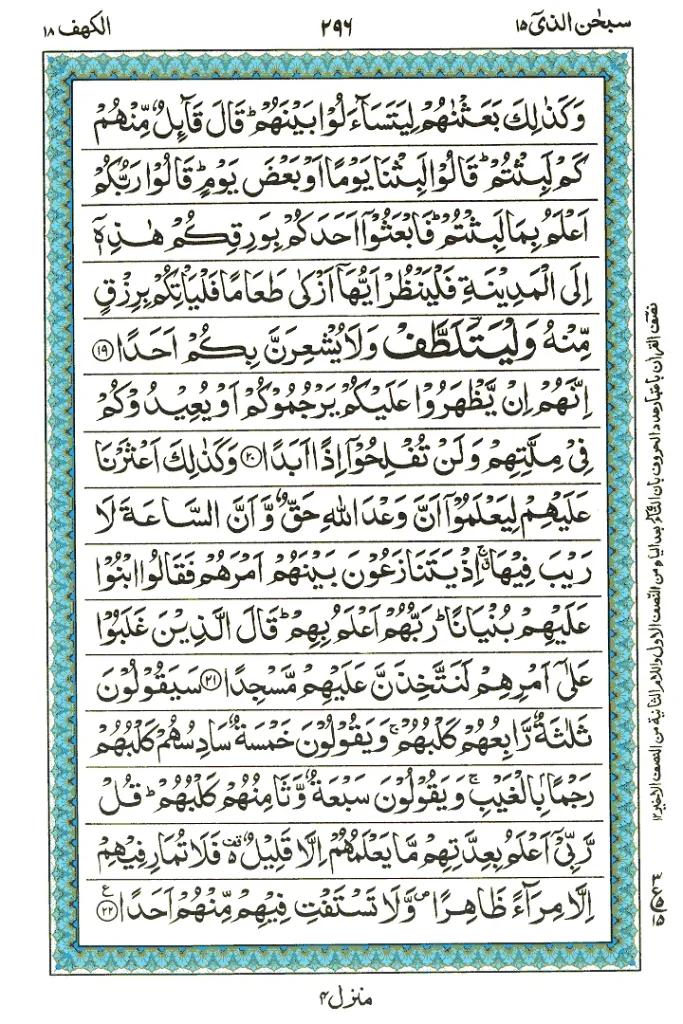 سبحٰن الذیٓ ١٥
٢٩٦
الکهف ١٨
وَكَذٰلِكَ بَعَثْنٰهُمْ لِيَتَسَآءَلُوْا بَيْنَهُمْ ؕ قَالَ قَآئِلٌ مِّنْهُمْ
كَمْ لَبِثْتُمْ ؕ قَالُوْا لَبِثْنَا يَوْمًا اَوْ بَعْضَ يَوْمٍ ؕ قَالُوْا رَبُّكُمْ
اَعْلَمُ بِمَا لَبِثْتُمْ ؕ فَابْعَثُوْۤا اَحَدَكُمْ بِوَرِقِكُمْ هٰذِهٖۤ
اِلَى الْمَدِيْنَةِ فَلْيَنْظُرْ اَيُّهَاۤ اَزْكٰى طَعَامًا فَلْيَاْتِكُمْ بِرِزْقٍ
مِّنْهُ وَلْيَتَلَطَّفْ وَلَا يُشْعِرَنَّ بِكُمْ اَحَدًا ﴿١٩﴾
اِنَّهُمْ اِنْ يَّظْهَرُوْا عَلَيْكُمْ يَرْجُمُوْكُمْ اَوْ يُعِيْدُوْكُمْ
فِيْ مِلَّتِهِمْ وَلَنْ تُفْلِحُوْۤا اِذًا اَبَدًا ﴿٢٠﴾ وَكَذٰلِكَ اَعْثَرْنَا
عَلَيْهِمْ لِيَعْلَمُوْۤا اَنَّ وَعْدَ اللّٰهِ حَقٌّ وَّاَنَّ السَّاعَةَ لَا
رَيْبَ فِيْهَا ۚ اِذْ يَتَنَازَعُوْنَ بَيْنَهُمْ اَمْرَهُمْ فَقَالُوا ابْنُوْا
عَلَيْهِمْ بُنْيَانًا ؕ رَبُّهُمْ اَعْلَمُ بِهِمْ ؕ قَالَ الَّذِيْنَ غَلَبُوْا
عَلٰٓى اَمْرِهِمْ لَنَتَّخِذَنَّ عَلَيْهِمْ مَّسْجِدًا ﴿٢١﴾ سَيَقُوْلُوْنَ
ثَلٰثَةٌ رَّابِعُهُمْ كَلْبُهُمْ ۚ وَيَقُوْلُوْنَ خَمْسَةٌ سَادِسُهُمْ كَلْبُهُمْ
رَجْمًا ۢ بِالْغَيْبِ ۚ وَيَقُوْلُوْنَ سَبْعَةٌ وَّثَامِنُهُمْ كَلْبُهُمْ ؕ قُلْ
رَّبِّيْۤ اَعْلَمُ بِعِدَّتِهِمْ مَّا يَعْلَمُهُمْ اِلَّا قَلِيْلٌ ۬ فَلَا تُمَارِ فِيْهِمْ
اِلَّا مِرَآءً ظَاهِرًا ۪ وَّلَا تَسْتَفْتِ فِيْهِمْ مِّنْهُمْ اَحَدًا ﴿٢٢﴾
نصف القرآن باعتبار عدد الحروف بان التاء بعد الیاء من النصف الاول واللام الثانیة من النصف الاخیر ١٢
منزل ٤